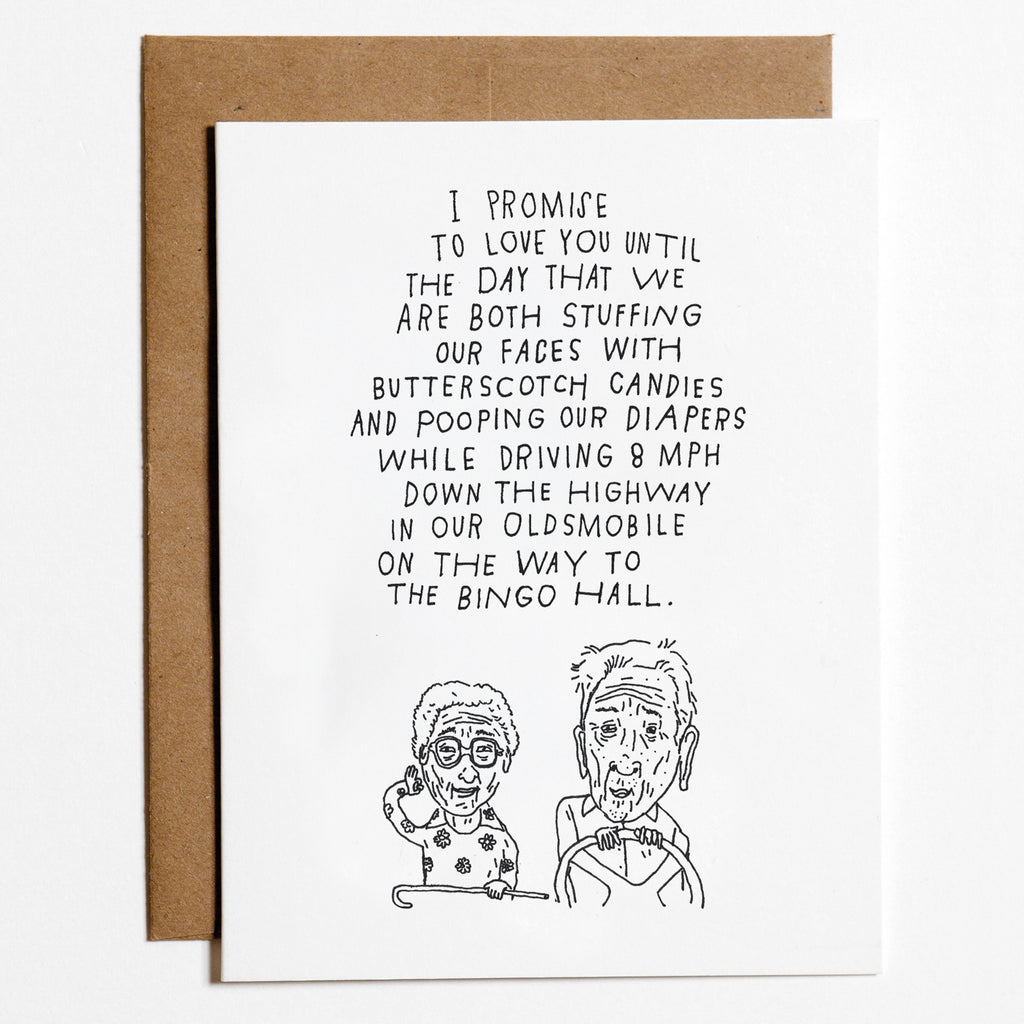 I PROMISE
TO LOVE YOU UNTIL
THE DAY THAT WE
ARE BOTH STUFFING
OUR FACES WITH
BUTTERSCOTCH CANDIES
AND POOPING OUR DIAPERS
WHILE DRIVING 8 MPH
DOWN THE HIGHWAY
IN OUR OLDSMOBILE
ON THE WAY TO
THE BINGO HALL.